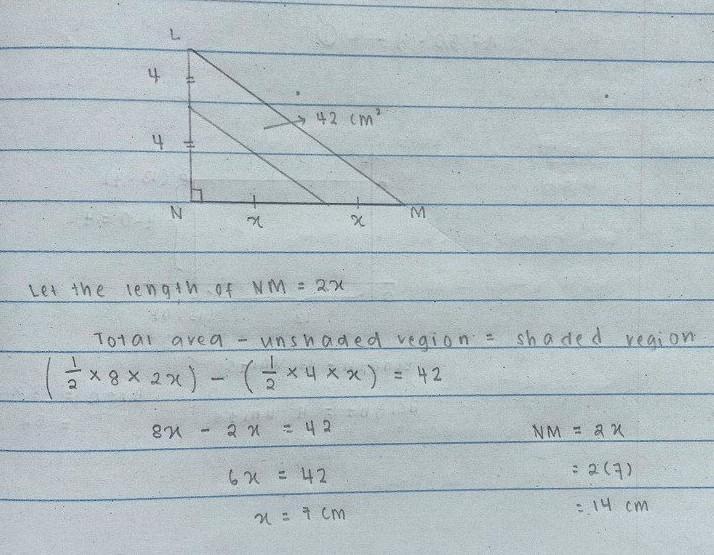 L
4
42 cm²
4
N
x
x
M
Let the length of NM = 2x
Total area - unshaded region = shaded region
(1/2 × 8 × 2x) - (1/2 × 4 × x) = 42
8x - 2x = 42
NM = 2x
6x = 42
= 2(7)
x = 7 cm
= 14 cm